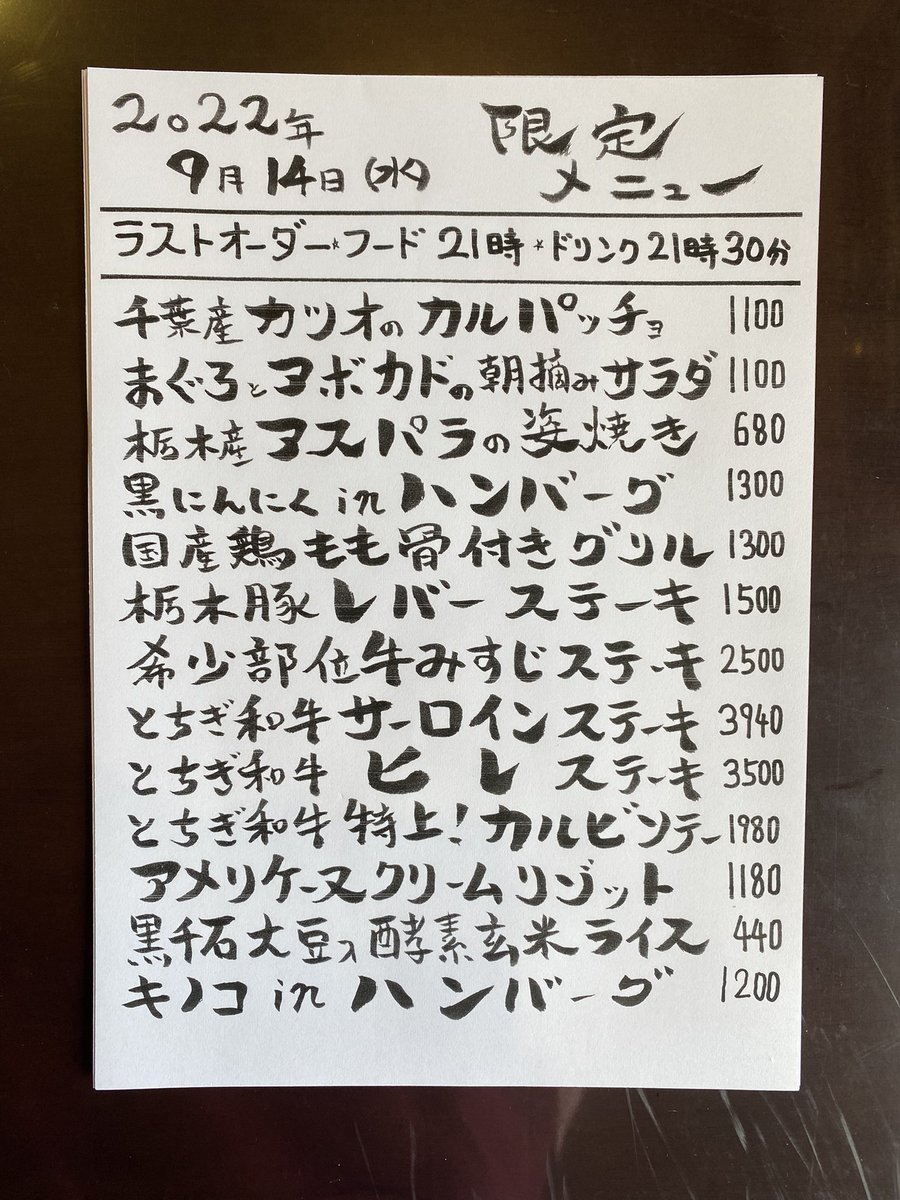 2022年
9月14日(水)
限定
メニュー
ラストオーダー*フード21時*ドリンク21時30分
千葉産カツオのカルパッチョ 1100
まぐろとアボカドの朝摘みサラダ 1100
栃木産アスパラの姿焼き 680
黒にんにくinハンバーグ 1300
国産鶏もも骨付きグリル 1300
栃木豚レバーステーキ 1500
希少部位牛みすじステーキ 2500
とちぎ和牛サーロインステーキ 3940
とちぎ和牛ヒレステーキ 3500
とちぎ和牛特上!カルビソテー 1980
アメリケーヌクリームリゾット 1180
黒千石大豆入酵素玄米ライス 440
キノコinハンバーグ 1200